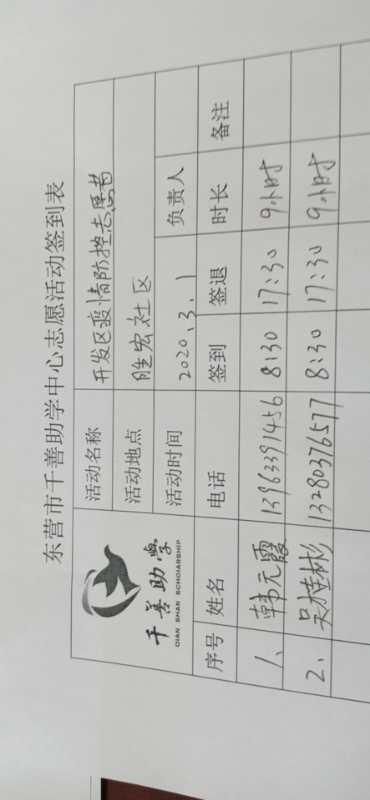 东营市千善助学中心志愿活动签到表
千善助学
QIAN SHAN SCHOLARSHIP
活动名称 开发区疫情防控志愿者
活动地点 胜宏社区
活动时间 2020.3.1 负责人
序号 姓名 电话 签到 签退 时长 备注
1、 韩元霞 13963391456 8:30 17:30 9小时
2、 吴桂彬 13280376577 8:30 17:30 9小时